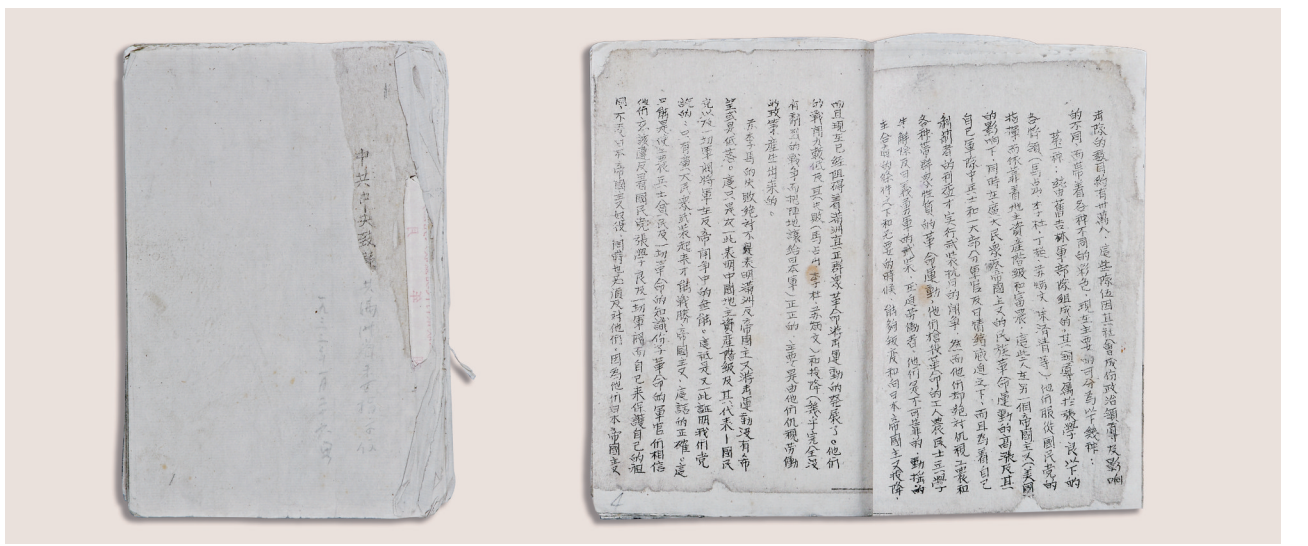 中共中央致
弗隊的数目約有卅萬人。這些隊伍因其社會成份政治領導及影响
的不同，而帶着各种不同的彩色。現在主要的可分為以下幾种：
某一种，純舊吉林軍部隊組成的。其領導屬於張學良以下的
各將領（馬占山李杜、丁超、蘇炳文、朱濟青等）他們服從國民党的
指揮而依靠着地主資產階級和富農，這些人在另一個帝國主义（美國）
的影响下，同時在廣大民衆底帝國主义的民族革命運動的高漲及其
自己軍隊中兵士和一大部分軍官反日情緒底逼迫之下，而且為着自己
剝削者的利益才实行武裝抗日的鬥争，然而他們却絶对仇視工農和
各种帶群衆性質的革命運動，他們搶殺革命的工人農民士兵學
生解除反日義勇軍的武装，正是勞動者，他們是不可靠的，動搖的
在合適的條件之下和必要的時候，能夠叛变和向日本帝國主义投降，
而且現在已經阻碍着滿洲真正群衆革命游击運動的發展了。他們
的戰鬥力數低及其已敗（馬占山、李杜、蘇炳文）和投降（幾乎完全沒
有劇烈的戰争而把陣地讓給日本軍）正正的、主要是由他們仇視勞働
的政策產生出來的。
苏李馬的失敗絶对不是表明滿洲反帝國主义游击運動沒有希
望或是低落。這只是次一此表明中國地主資產階級及其代表－國民
党以及一切軍閥將軍在反帝鬥争中的無能。這祗是又一此証明我們党
說的：只有廣大民衆武装起來才能戰勝帝國主义，這話的正確。這
只能是促進農兵士貧民及一切革命的知識份子革命的軍官們相信
他們应該違反着國民党張學良及一切軍閥而自己來保護自己的祖
國，不受日本帝國主义奴役，同時也必須反对他們，因為他們向日本帝國主义